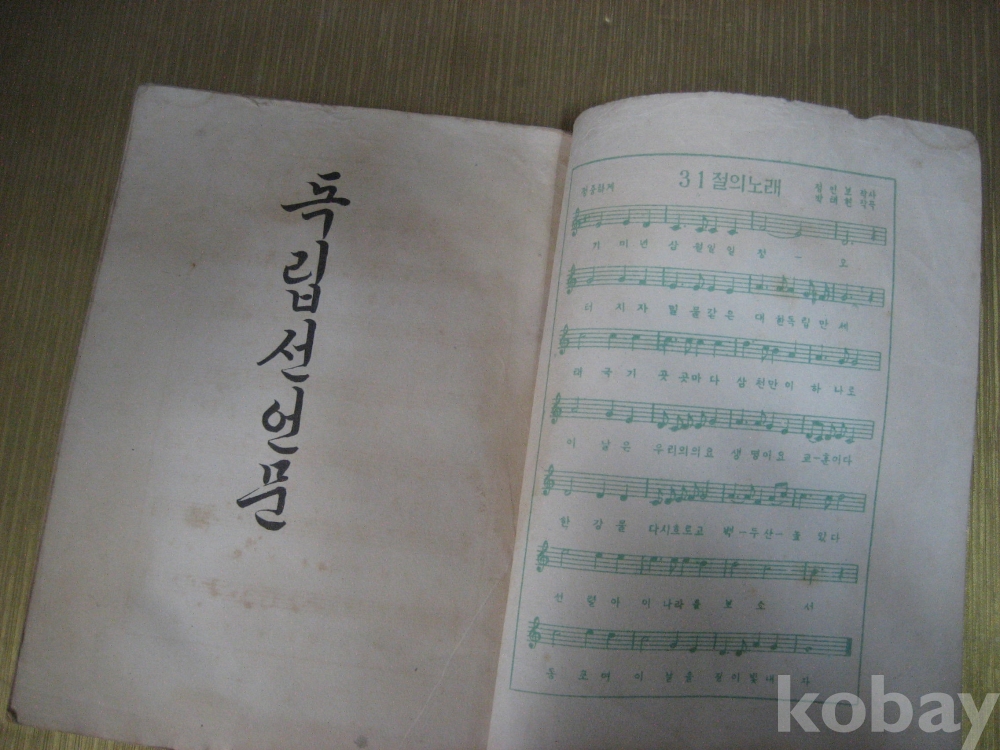 독립선언문
31절의노래
정 인 보 작사
박 태 현 작곡
기 미 년 삼 월 일 일 정 - 오
터 지 자 밀 물 같 은 대 한 독 립 만 세
태 극 기 곳 곳 마 다 삼 천 만 이 하 나 로
이 날 은 우 리 의 의 요 생 명 이 요 교-훈 이 다
한 강 물 다 시 흐 르 고 백-두 산- 높 았 다
선 열 아 이 나 라 를 보 소 서
동 포 여 이 날 을 길 이 빛 내 자
kobay